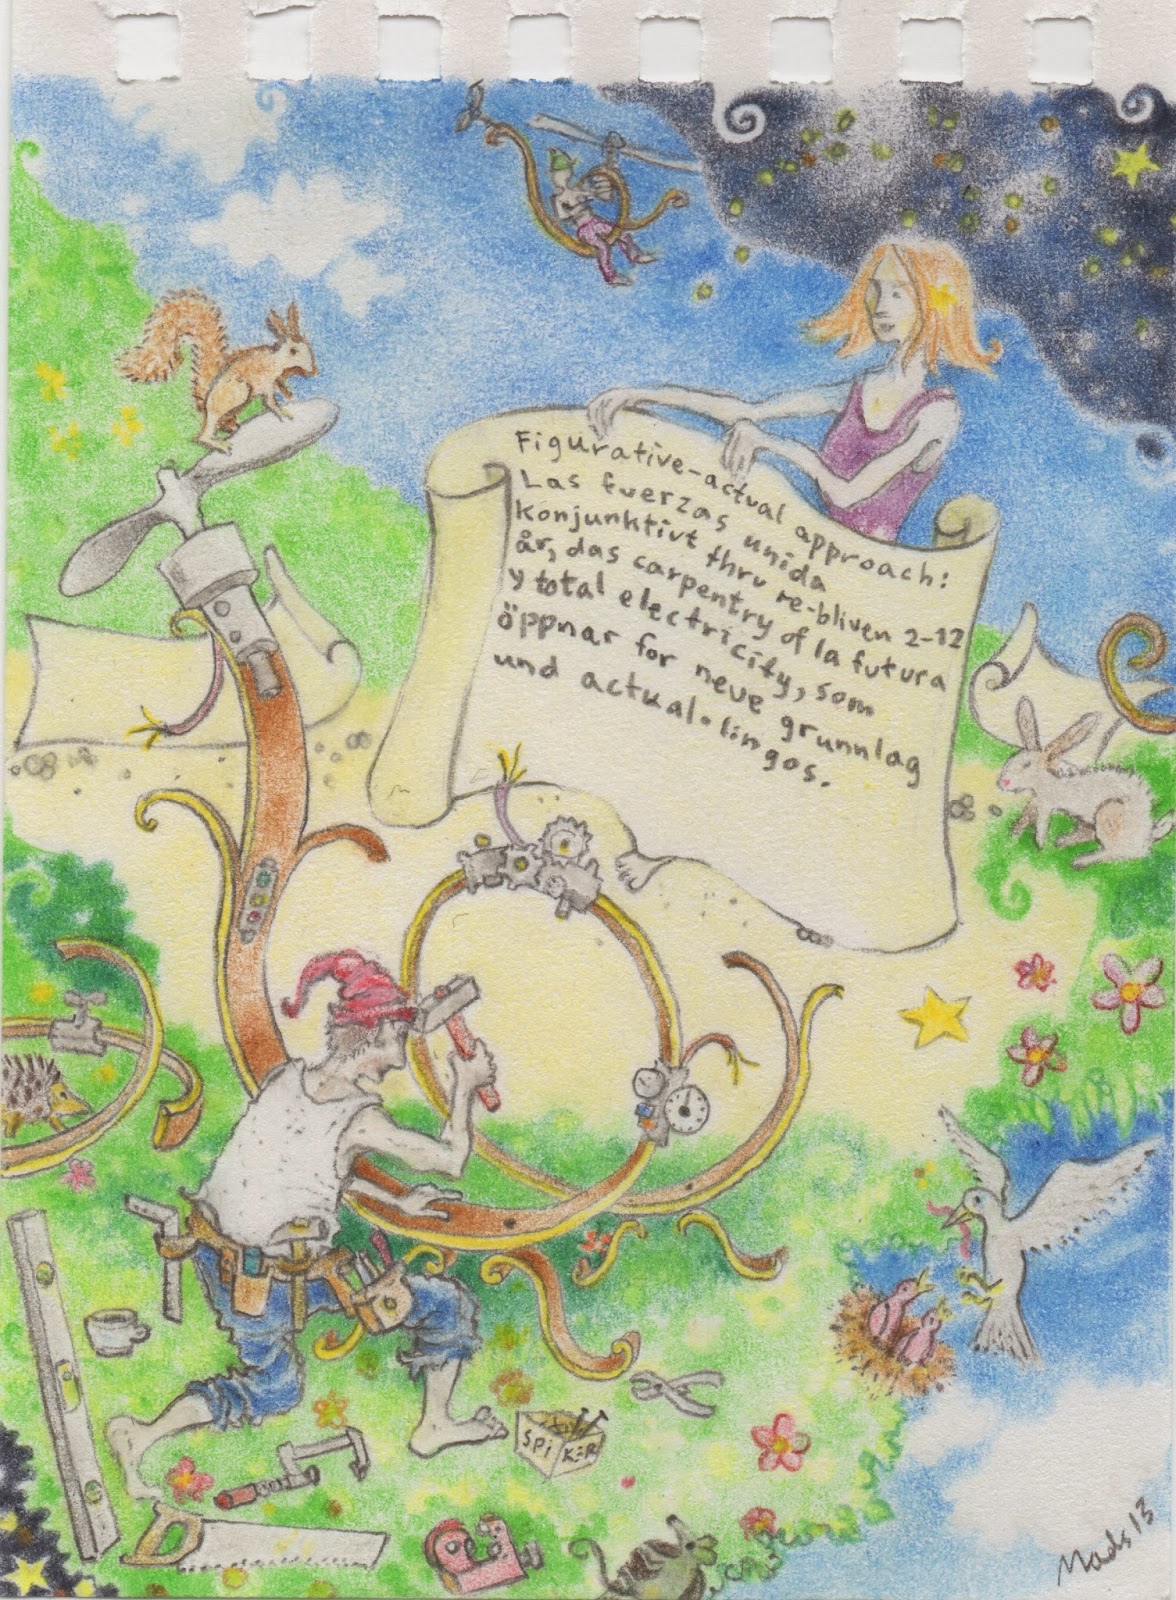 Figurative-actual approach:
Las fuerzas unida
konjunktivt thru re-bliven 2-12
år, das carpentry of la futura
y total electricity, som
öppnar for neue grunnlag
und actual-lingos.
SPiKER
Mads 13